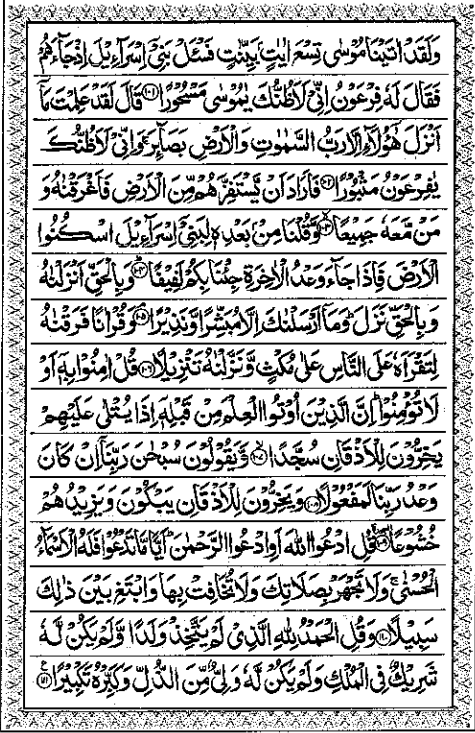 وَلَقَدْ اٰتَيْنَا مُوْسٰى تِسْعَ اٰيٰتٍۭ بَيِّنٰتٍ فَسْـَٔلْ بَنِيْٓ اِسْرَآءِيْلَ اِذْ جَآءَهُمْ
فَقَالَ لَهٗ فِرْعَوْنُ اِنِّيْ لَاَظُنُّكَ يٰمُوْسٰى مَسْحُوْرًا ۝۱۰۱ قَالَ لَقَدْ عَلِمْتَ مَآ
اَنْزَلَ هٰٓؤُلَآءِ اِلَّا رَبُّ السَّمٰوٰتِ وَالْاَرْضِ بَصَآئِرَ ۚ وَاِنِّيْ لَاَظُنُّكَ
يٰفِرْعَوْنُ مَثْبُوْرًا ۝۱۰۲ فَاَرَادَ اَنْ يَّسْتَفِزَّهُمْ مِّنَ الْاَرْضِ فَاَغْرَقْنٰهُ وَ
مَنْ مَّعَهٗ جَمِيْعًا ۝۱۰۳ وَّقُلْنَا مِنْۢ بَعْدِهٖ لِبَنِيْٓ اِسْرَآءِيْلَ اسْكُنُوا
الْاَرْضَ فَاِذَا جَآءَ وَعْدُ الْاٰخِرَةِ جِئْنَا بِكُمْ لَفِيْفًا ۝۱۰۴ وَبِالْحَقِّ اَنْزَلْنٰهُ
وَبِالْحَقِّ نَزَلَ ؕ وَمَآ اَرْسَلْنٰكَ اِلَّا مُبَشِّرًا وَّنَذِيْرًا ۝۱۰۵ وَقُرْاٰنًا فَرَقْنٰهُ
لِتَقْرَاَهٗ عَلَى النَّاسِ عَلٰى مُكْثٍ وَّنَزَّلْنٰهُ تَنْزِيْلًا ۝۱۰۶ قُلْ اٰمِنُوْا بِهٖٓ اَوْ
لَا تُؤْمِنُوْا ؕ اِنَّ الَّذِيْنَ اُوْتُوا الْعِلْمَ مِنْ قَبْلِهٖٓ اِذَا يُتْلٰى عَلَيْهِمْ
يَخِرُّوْنَ لِلْاَذْقَانِ سُجَّدًا ۝۱۰۷ وَّيَقُوْلُوْنَ سُبْحٰنَ رَبِّنَآ اِنْ كَانَ
وَعْدُ رَبِّنَا لَمَفْعُوْلًا ۝۱۰۸ وَيَخِرُّوْنَ لِلْاَذْقَانِ يَبْكُوْنَ وَيَزِيْدُهُمْ
خُشُوْعًا ۝۱۰۹ قُلِ ادْعُوا اللّٰهَ اَوِ ادْعُوا الرَّحْمٰنَ ؕ اَيًّا مَّا تَدْعُوْا فَلَهُ الْاَسْمَآءُ
الْحُسْنٰى ۚ وَلَا تَجْهَرْ بِصَلَاتِكَ وَلَا تُخَافِتْ بِهَا وَابْتَغِ بَيْنَ ذٰلِكَ
سَبِيْلًا ۝۱۱۰ وَقُلِ الْحَمْدُ لِلّٰهِ الَّذِيْ لَمْ يَتَّخِذْ وَلَدًا وَّلَمْ يَكُنْ لَّهٗ
شَرِيْكٌ فِي الْمُلْكِ وَلَمْ يَكُنْ لَّهٗ وَلِيٌّ مِّنَ الذُّلِّ وَكَبِّرْهُ تَكْبِيْرًا ۝۱۱۱